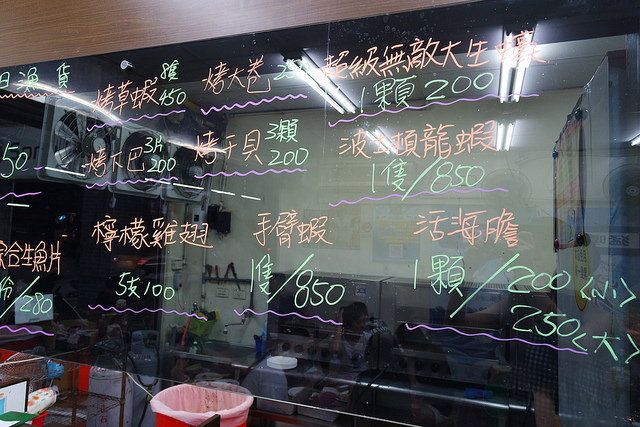 日漁貨
烤草蝦 450
烤大卷
超級無敵大生蠔
1顆200
50
烤下巴 3片200
烤干貝 3顆200
波士頓龍蝦
1隻/850
綜合生魚片
份/280
檸檬雞翅
5支100
手臂蝦
1隻/850
活海膽
1顆/200<小>
250<大>